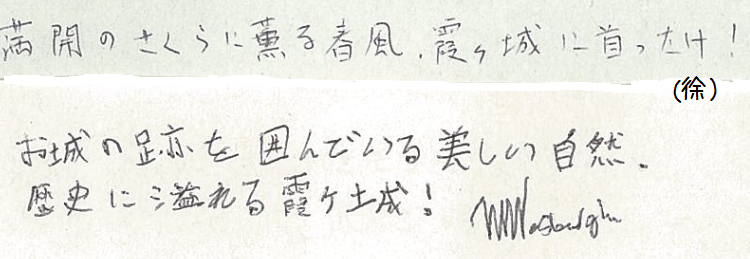 満開のさくらに薫る春風、霞ヶ城に首ったけ!
(徐)
お城の跡を囲んでいる美しい自然、
歴史に溢れる霞ヶ城!